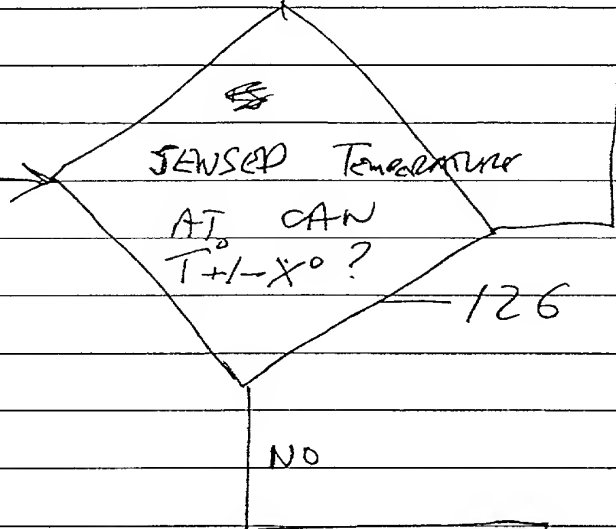 SENSED TEMPERATURE
AT CAN
T° +/- X° ?
126
NO